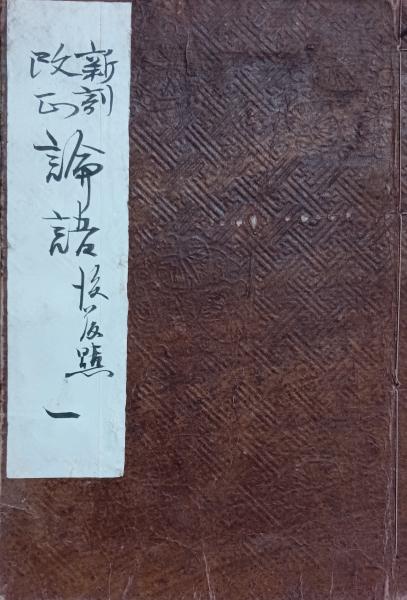 新刻
改正
論語 後藤點 一